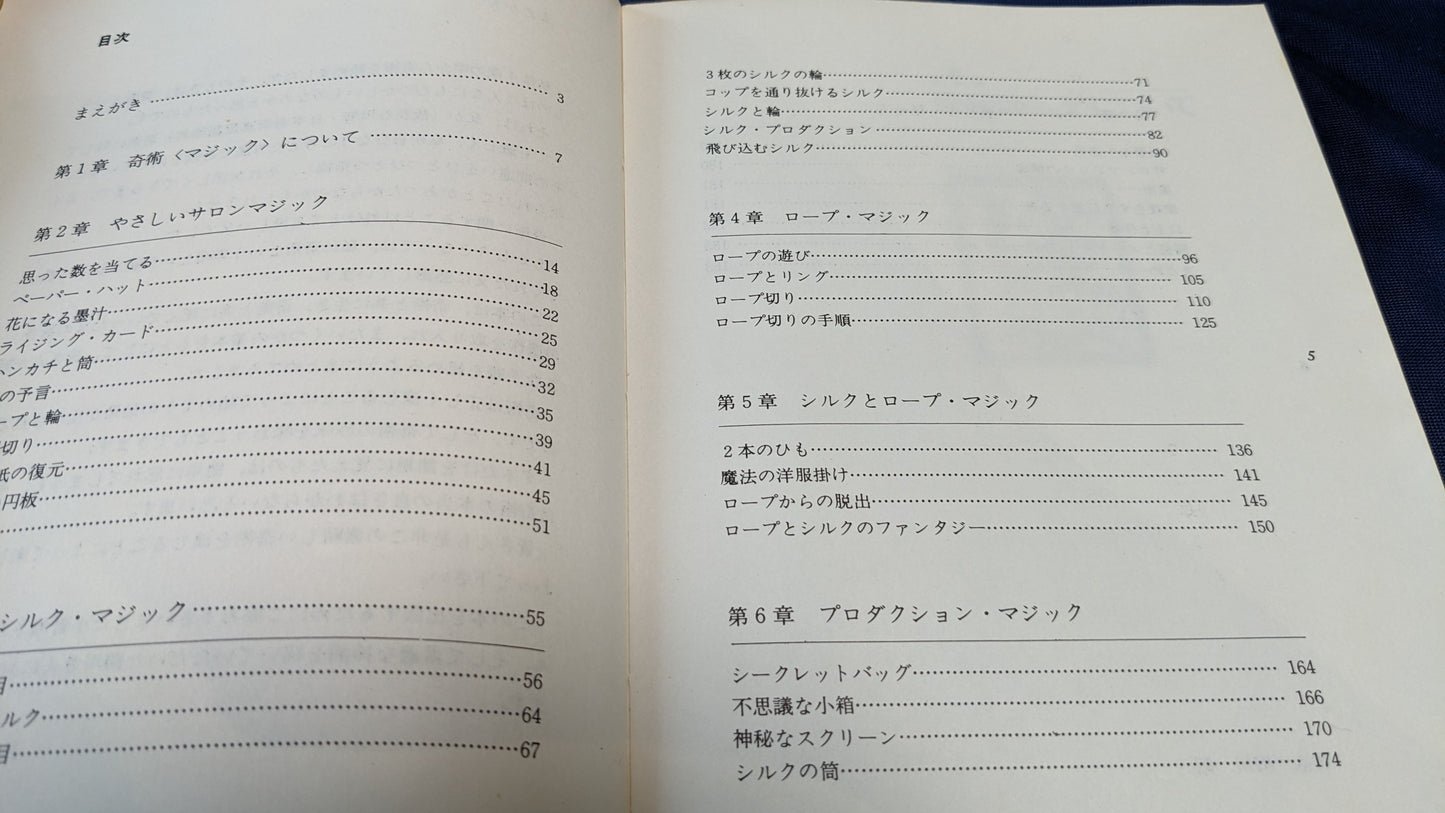 目次
まえがき……3
第1章 奇術〈マジック〉について……7
第2章 やさしいサロンマジック
思った数を当てる……14
ペーパー・ハット……18
花になる墨汁……22
ライジング・カード……25
ハンカチと筒……29
の予言……32
ープと輪……35
切り……39
紙の復元……41
円板……45
……51
シルク・マジック……55
目……56
ルク……64
目……67
3枚のシルクの輪……71
コップを通り抜けるシルク……74
シルクと輪……77
シルク・プロダクション……82
飛び込むシルク……90
第4章 ロープ・マジック
ロープの遊び……96
ロープとリング……105
ロープ切り……110
ロープ切りの手順……125
5
第5章 シルクとロープ・マジック
2本のひも……136
魔法の洋服掛け……141
ロープからの脱出……145
ロープとシルクのファンタジー……150
第6章 プロダクション・マジック
シークレットバッグ……164
不思議な小箱……166
神秘なスクリーン……170
シルクの筒……174